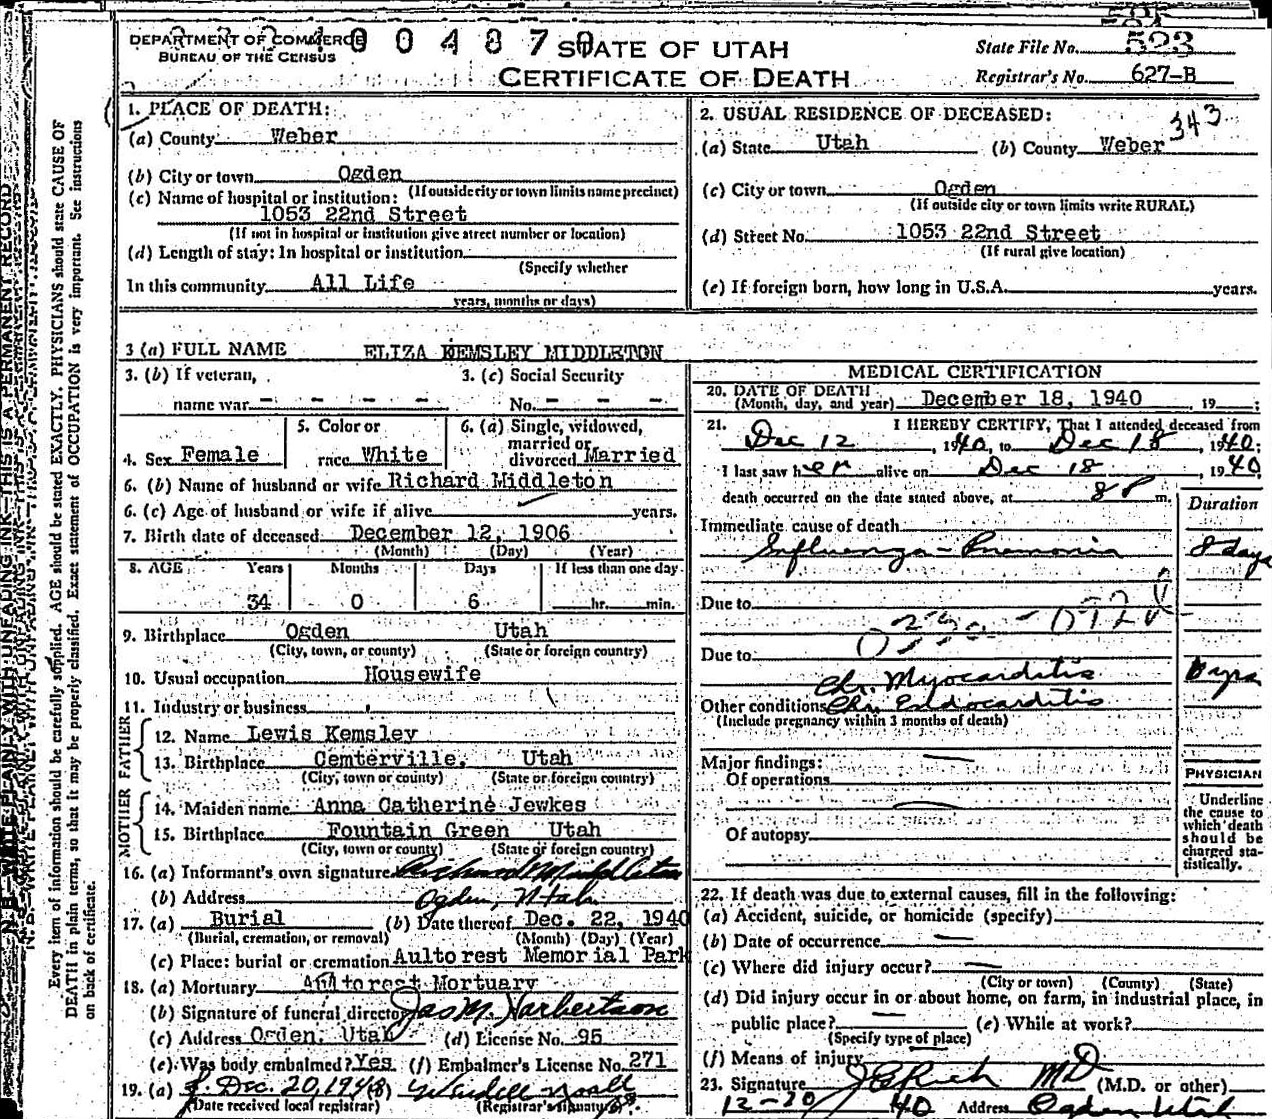 DEPARTMENT OF COMMERCE
BUREAU OF THE CENSUS
STATE OF UTAH
CERTIFICATE OF DEATH
State File No. 523
Registrar's No. 627-B
1. PLACE OF DEATH:
(a) County Weber
(b) City or town Ogden
(If outside city or town limits name precinct)
(c) Name of hospital or institution:
1053 22nd Street
(If not in hospital or institution give street number or location)
(d) Length of stay: In hospital or institution
(Specify whether
In this community All Life
years, months or days)
2. USUAL RESIDENCE OF DECEASED:
343
(a) State Utah (b) County Weber
(c) City or town Ogden
(If outside city or town limits write RURAL)
(d) Street No. 1053 22nd Street
(If rural give location)
(e) If foreign born, how long in U.S.A. years.
3 (a) FULL NAME ELIZA KEMSLEY MIDDLETON
3. (b) If veteran, 3. (c) Social Security
name war - - - No. - - -
5. Color or 6. (a) Single, widowed,
married or
4. Sex Female race White divorced Married
6. (b) Name of husband or wife Richard Middleton
6. (c) Age of husband or wife if alive years.
7. Birth date of deceased December 12, 1906
(Month) (Day) (Year)
8. AGE Years Months Days If less than one day
34 0 6 hr. min.
9. Birthplace Ogden Utah
(City, town, or county) (State or foreign country)
10. Usual occupation Housewife
11. Industry or business
FATHER
12. Name Lewis Kemsley
13. Birthplace Cemterville, Utah
(City, town or county) (State or foreign country)
MOTHER
14. Maiden name Anna Catherine Jewkes
15. Birthplace Fountain Green Utah
(City, town or county) (State or foreign country)
16. (a) Informant's own signature Richard Middleton
(b) Address Ogden, Utah
17. (a) Burial (b) Date thereof Dec. 22, 1940
(Burial, cremation, or removal) (Month) (Day) (Year)
(c) Place: burial or cremation Aultorest Memorial Park
18. (a) Mortuary Aultorest Mortuary
(b) Signature of funeral director Jas M. Harbertson
(c) Address Ogden, Utah (d) License No. 95
(e) Was body embalmed? Yes (f) Embalmer's License No. 271
19. (a) Dec. 20, 194 (b) Wendell
(Date received local registrar) (Registrar's signature)
MEDICAL CERTIFICATION
20. DATE OF DEATH
(Month, day, and year) December 18, 1940, 19 ;
21. I HEREBY CERTIFY, That I attended deceased from
Dec 12, 1940, to Dec 18, 1940;
I last saw her alive on Dec 18 1940,
death occurred on the date stated above, at 8 P m.
Duration
Immediate cause of death
Influenza - Pnemonia 8 days
Due to
Due to
Chr. Myocarditis yrs
Other conditions Chr. Endocarditis
(Include pregnancy within 3 months of death)
Major findings:
Of operations
Of autopsy
PHYSICIAN
Underline
the cause to
which death
should be
charged sta-
tistically.
22. If death was due to external causes, fill in the following:
(a) Accident, suicide, or homicide (specify)
(b) Date of occurrence
(c) Where did injury occur?
(City or town) (County) (State)
(d) Did injury occur in or about home, on farm, in industrial place, in
public place? (e) While at work?
(Specify type of place)
(f) Means of injury
23. Signature Rich MD (M.D. or other)
12-20 40 Address Ogden Utah
N. B.—WRITE PLAINLY WITH UNFADING INK—THIS IS A PERMANENT RECORD
Every item of information should be carefully supplied. AGE should be stated EXACTLY. PHYSICIANS should state CAUSE OF
DEATH in plain terms, so that it may be properly classified. Exact statement of OCCUPATION is very important. See instructions
on back of certificate.